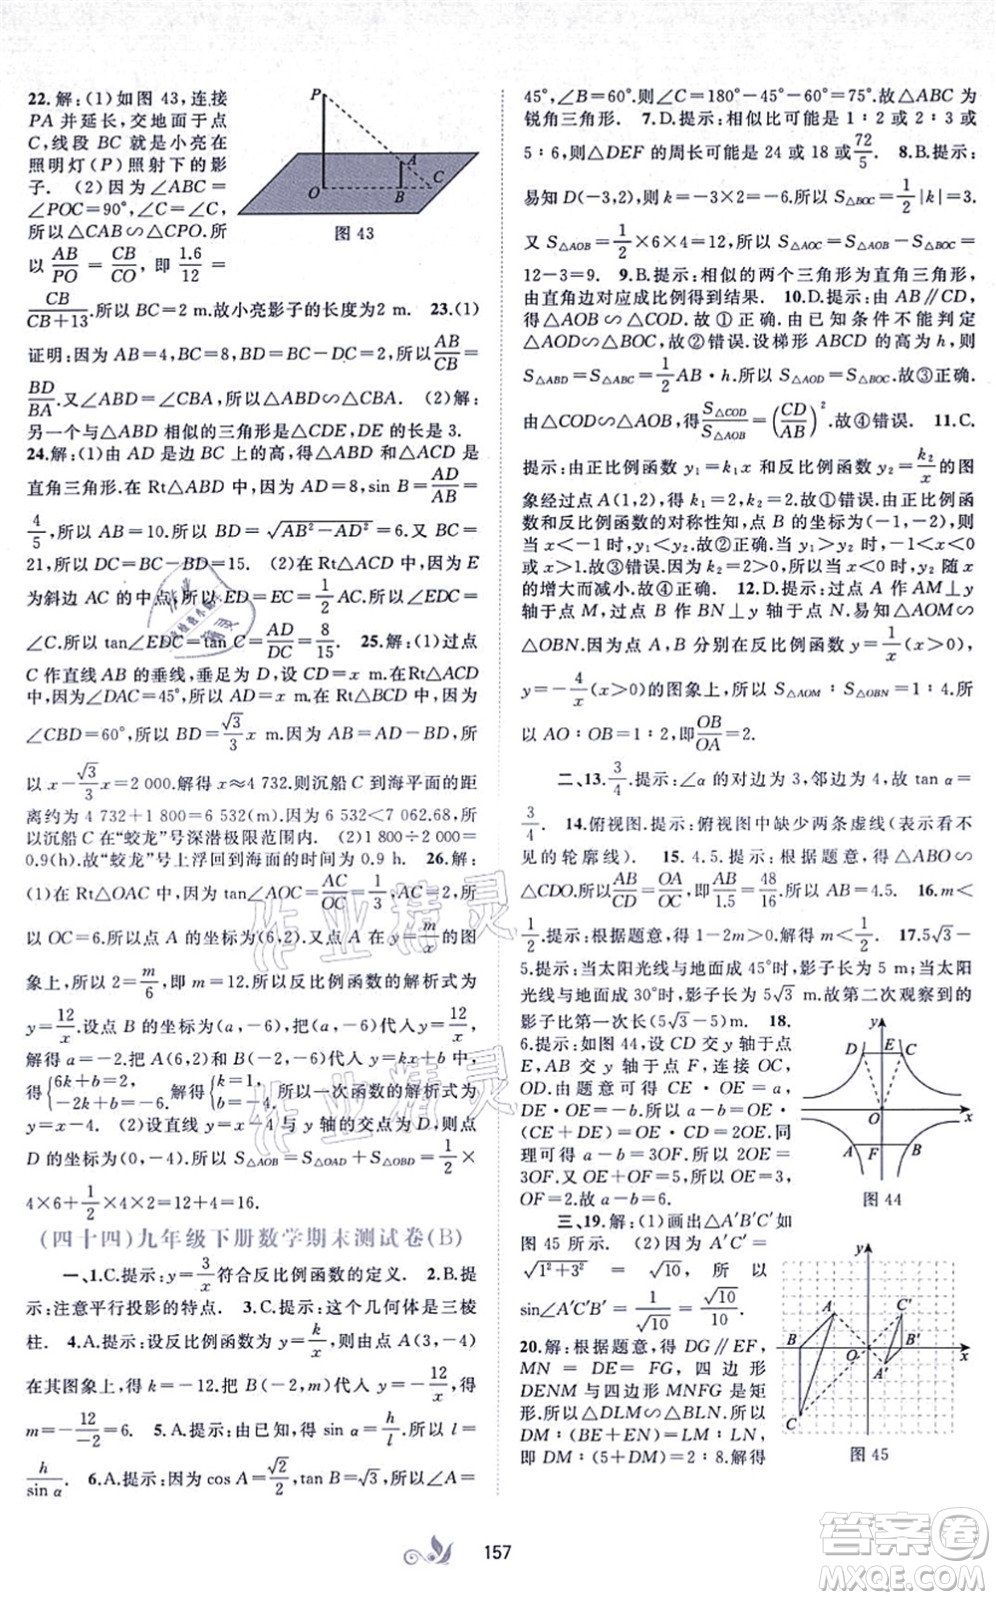 22.解：(1)如图 43，连接
PA 并延长，交地面于点
C，线段 BC 就是小亮在
照明灯(P)照射下的影
子. (2)因为∠CAB=
∠POC=90°，∠C=∠C，
所以△CAB∽△CPO. 所
以 AB/PO = CB/CO，即 1.6/12 =
CB/(CB+13). 所以 BC=2 m. 故小亮影子的长度为2 m. 23.(1)
证明：因为 AB=4，BC=8，BD=BC-DC=2，所以 AB/CB =
BD/BA. 又∠ABD=∠CBA，所以△ABD∽△CBA. (2)解：
另一个与△ABD 相似的三角形是△CDE，DE 的长是 3.
24.解：(1)由 AD 是边 BC 上的高，得△ABD 和△ACD 是
直角三角形. 在 Rt△ABD 中，因为 AD=8，sin B = AD/AB =
4/5，所以 AB=10. 所以 BD=√(AB²-AD²)=6. 又 BC=
21，所以 DC=BC-BD=15. (2)在Rt△ADC 中，因为 E
为斜边 AC 的中点，所以 ED=EC=1/2 AC. 所以∠EDC=
∠C. 所以 tan∠EDC=tan C=AD/DC=8/15. 25.解：(1)过点
C 作直线 AB 的垂线，垂足为 D，设 CD=x m. 在 Rt△ACD
中，因为∠DAC=45°，所以 AD=x m. 在 Rt△BCD 中，因为
∠CBD=60°，所以 BD=√3/3 x m. 因为 AB=AD-BD，所
以 x-√3/3 x=2 000. 解得 x≈4 732. 所以沉船 C 到海平面的距
离约为 4 732+1 800=6 532(m). 因为 6 532<7 062.68，所
以沉船 C 在“蛟龙”号深潜极限范围内. (2)1 800÷2 000=
0.9(h). 故“蛟龙”号上浮回到海面的时间为 0.9 h. 26.解：
(1)在 Rt△OAC 中，因为 tan∠AOC=AC/OC=1/3，AC=2，所
以 OC=6. 所以点 A 的坐标为(6,2). 又点 A 在 y=m/x 的图
象上，所以 2=m/6，即 m=12. 所以反比例函数的解析式为
y=12/x. 设点 B 的坐标为(a,-6)，把(a,-6)代入 y=12/x，
解得 a=-2. 把 A(6,2)和 B(-2,-6)代入 y=kx+b，
得{6k+b=2，-2k+b=-6. 解得{k=1，b=-4. 所以一次函数的解析式为
y=x-4. (2)设直线 y=x-4 与 y 轴的交点为 D，则点
D 的坐标为(0,-4). 所以 S△AOB=S△OAD+S△OBD=1/2×
4×6+1/2×4×2=12+4=16.
(四十四)九年级下册数学期末测试卷(B)
一、1.C.提示：y=3/x 符合反比例函数的定义. 2.B.提
示：注意平行投影的特点. 3.C.提示：这个几何体是三棱
柱. 4.A.提示：设反比例函数为 y=k/x，由点 A(3,-4)
在其图象上，得 k=-12. 把 B(-2,m)代入 y=-12/x，得
m=-12/-2=6. 5.A.提示：由已知，得 sin α=h/l. 所以 l=
h/sin α. 6.A.提示：因为 cos A=√2/2，tan B=√3，所以∠A=
P
A
O
B
C
图 43
45°，∠B=60°. 则∠C=180°-45°-60°=75°. 故△ABC 为
锐角三角形. 7.D.提示：相似比可能是 1∶2 或 2∶3 或
5∶6，所以△DEF 的周长可能是 24 或 18 或 72/5. 8.B.提示：
易知 D(-3,2)，所以 k=-3×2=-6. 所以 S△BOC=1/2|k|=3.
又 S△AOB=1/2×6×4=12，所以 S△AOC=S△AOB-S△BOC=
12-3=9. 9.B.提示：相似的两个三角形为直角三角形，
由直角边对应成比例得到结果. 10.D.提示：由 AB∥CD，
得△AOB∽△COD. 故①正确. 由已知条件不能判定
△AOD∽△BOC，故②错误. 设梯形 ABCD 的高为 h，则
S△ABD=S△ABC=1/2 AB·h. 所以 S△AOD=S△BOC. 故③正确.
由△COD∽△AOB，得 S△COD/S△AOB=(CD/AB)². 故④错误. 11.C.
提示：由正比例函数 y₁=k₁x 和反比例函数 y₂=k₂/x 的图
象经过点 A(1,2)，得 k₁=2，k₂=2. 故①错误. 由正比例函
数和反比例函数的对称性知，点 B 的坐标为(-1,-2).
当 x<-1 或 0<x<1 时，y₂>y₁. 故②错误，③正确.
当 x<0 时，y₁随 x 的增大而增大，y₂ 随 x
的增大而减小. 故④正确. 12.D.提示：过点 A 作 AM⊥y
轴于点 M，过点 B 作 BN⊥y 轴于点 N，易证△AOM∽
△OBN. 因为点 A，B 分别在反比例函数 y=1/x(x>0)，
y=-4/x(x>0)的图象上，所以 S△AOM∶S△OBN=1∶4. 所
以 AO∶OB=1∶2，即 OB/OA=2.
二、13. 3/4. 提示：∠α 的对边为 3，邻边为 4，故 tan α=
3/4. 14.俯视图. 提示：俯视图中缺少两条虚线(表示看不
见的轮廓线). 15. 4.5. 提示：根据题意，得△ABO∽
△CDO. 所以 AB/CD=OA/OC，即 AB/1.5=48/16. 所以 AB=4.5. 16. m<
1/2. 提示：根据题意，得 1-2m>0. 解得 m<1/2. 17. 5√3-
5. 提示：当太阳光线与地面成 45°时，影子长为 5 m；当太阳
光线与地面成 30°时，影子长为 5√3 m. 故第二次观察到的
影子比第一次长(5√3-5)m. 18.
6. 提示：如图 44，设 CD 交 y 轴于点
E，AB 交 y 轴于点 F，连接 OC，
OD. 由题意可得 CE·OE=a，
DE·OE=-b. 所以 a-b=OE·
(CE+DE)=OE·CD=2OE. 同
理可得 a-b=3OF. 所以 2OE=
3OF. 又 OE+OF=5，所以 OE=3，
OF=2. 所以 a-b=6.
y
D E C
O x
A F B
图 44
三、19.解：(1)画出△A′B′C′如
图 45 所示. (2)因为 A′C′=
√(1²+3²)=√10，所以
sin∠A′C′B′=1/√10=√10/10.
20.解：根据题意，得 DG∥EF，
MN=DE=FG，四边形
DENM 与四边形 MNFG 是矩
形. 所以△DLM∽△BLN. 所以
DM∶(BE+EN)=LM∶LN，
即 DM∶(5+DM)=2∶8. 解得
y
A C′
B O B′ x
A′
C
图 45
157
作业精灵
作业精灵
答案圈
MXQE.COM